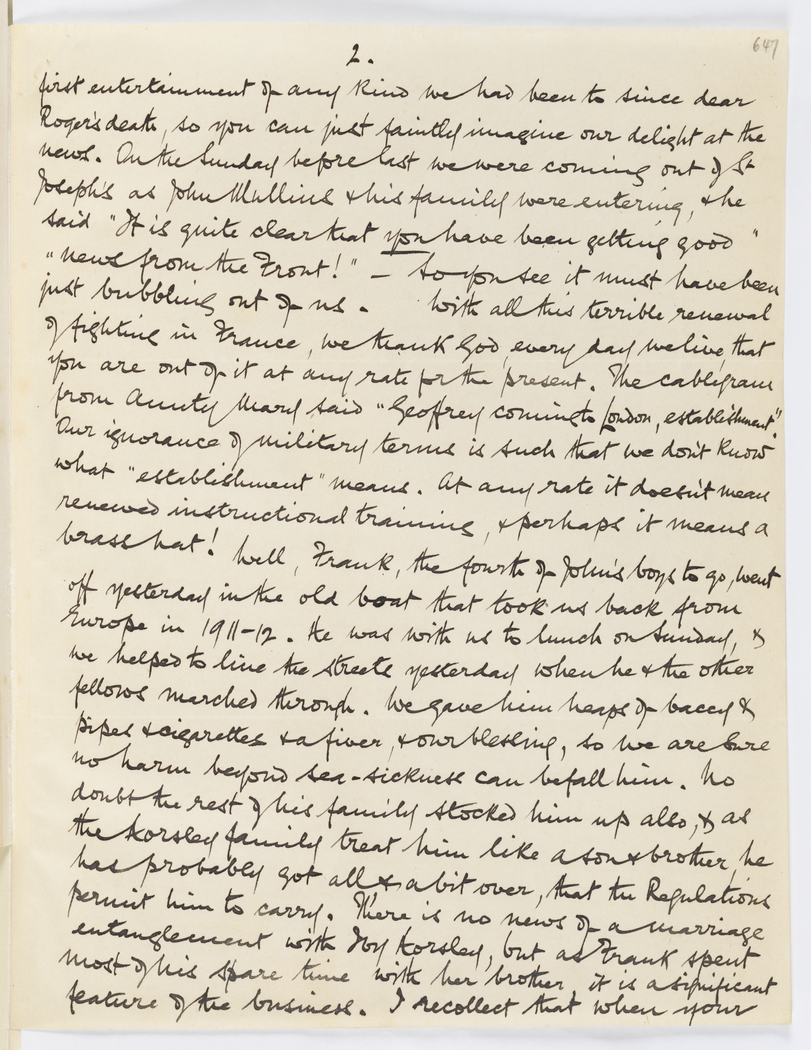 647
2.
first entertainment of any kind we had been to since dear
Roger's death, so you can just faintly imagine our delight at the
news. On the Sunday before last we were coming out of St
Joseph's as John Mullins & his family were entering, & he
said "It is quite clear that you have been getting good "
"news from the Front!" — So you see it must have been
just bubbling out of us. With all this terrible renewal
of fighting in France, we thank God, every day we live, that
you are out of it at any rate for the present. The cablegram
from Aunty Mary said "Geoffrey coming to London, establishment."
Our ignorance of military terms is such that we don't know
what "establishment" means. At any rate it doesn't mean
renewed instructional training, & perhaps it means a
brass hat! Well, Frank, the fourth of John's boys to go, went
off yesterday in the old boat that took us back from
Europe in 1911-12. He was with us to lunch on Sunday, &
we helped to line the streets yesterday when he & the other
fellows marched through. We gave him heaps of baccy &
pipes & cigarettes & a fiver, & our blessing, so we are sure
no harm beyond sea-sickness can befall him. No
doubt the rest of his family stocked him up also, & as
the Korsley family treat him like a son & brother, he
has probably got all & a bit over, that the Regulations
permit him to carry. There is no news of a marriage
entanglement with Ivy Korsley, but as Frank spent
most of his spare time with her brother, it is a significant
feature of the business. I recollect that when your